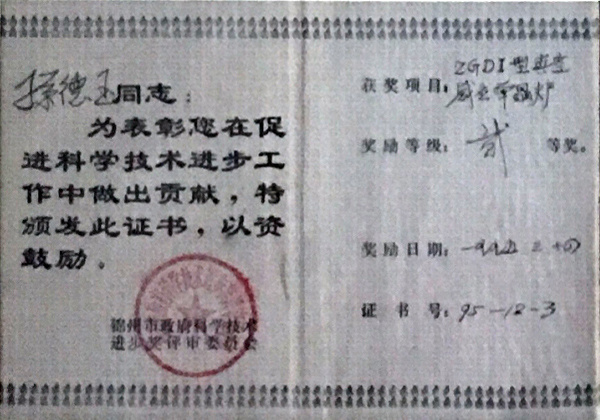 德玉同志：
为表彰您在促
进科学技术进步工
作中做出贡献，特
颁发此证书，以资
鼓励。
锦州市政府科学技术
进步奖评审委员会
获奖项目：ZGDI型真空
感应单晶炉
奖励等级：贰 等奖。
奖励日期：
证书号：95-12-3